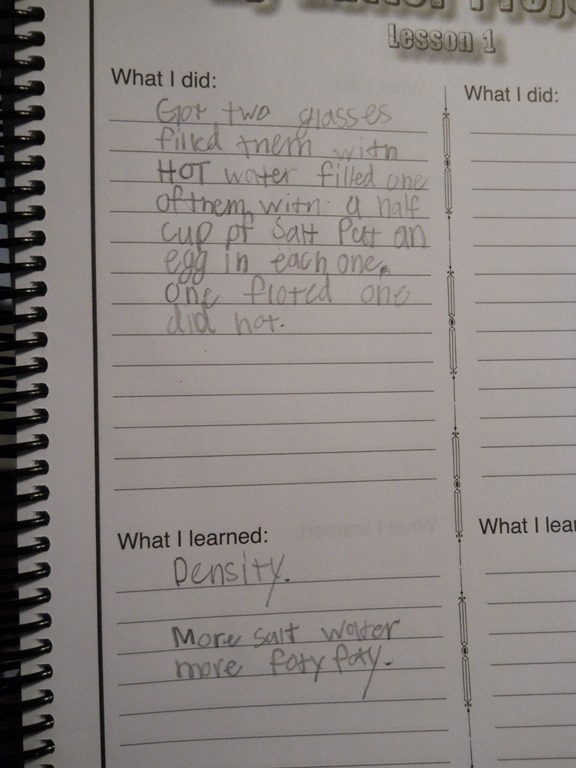 Lesson 1
What I did:
Got two glasses
filled them with
HOT water filled one
of them with a half
cup of Salt Put an
egg in each one.
one floted one
did not.
What I learned:
Density.
More salt water
more foty foty.
What I did:
What I lea